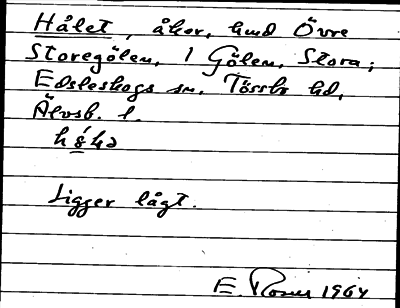 Hålet, åker, hmd Övre
Storegölen, 1 Gölen, Stora;
Edsleskogs sn. Tössbo hd,
Älvsb. l.
Ligger lågt.
E. Rosen 1964